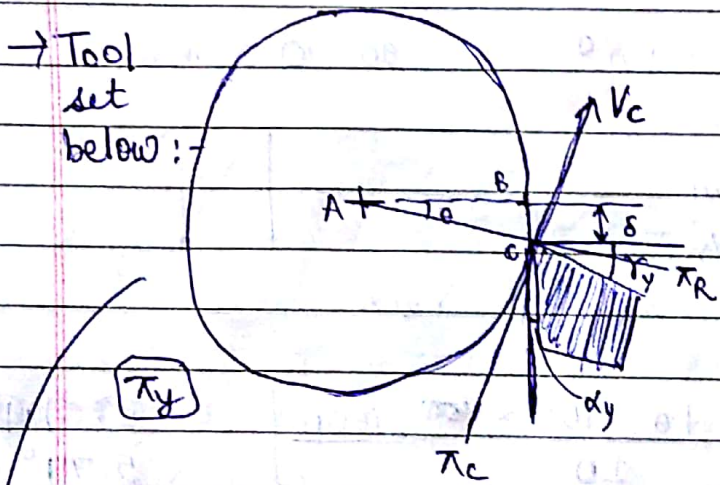 → Tool
set
below :-
Vc
A
B
θ
δ
C
γy
πR
πy
αy
πc